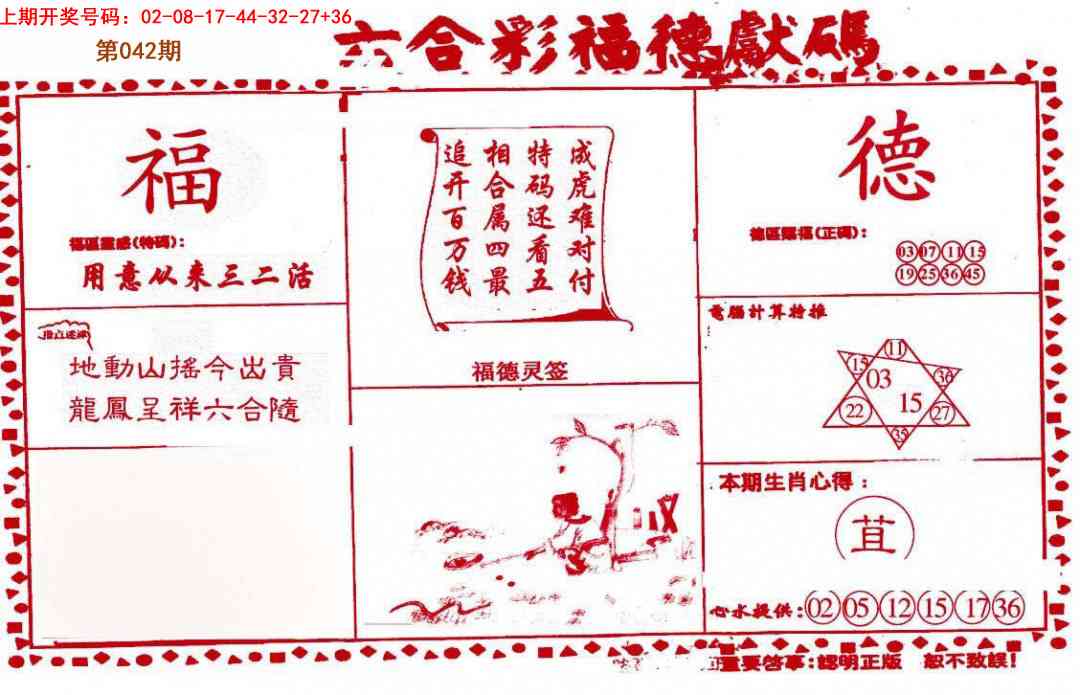 上期开奖号码：02-08-17-44-32-27+36
第042期
六合彩福德獻碼
福
福區靈感(特碼)：
用意从来三二活
地動山搖今出貴
龍鳳呈祥六合隨
成虎难对付
特码还看五
相合属四最
追开百万钱
福德灵签
德
德區賜福(正碼)：
03 07 11 15
19 25 36 45
電腦計算特推
11
15
36
03
22
15
27
35
本期生肖心得：
苴
心水提供：02 05 12 15 17 36
重要啓事：認明正版 恕不致誤!